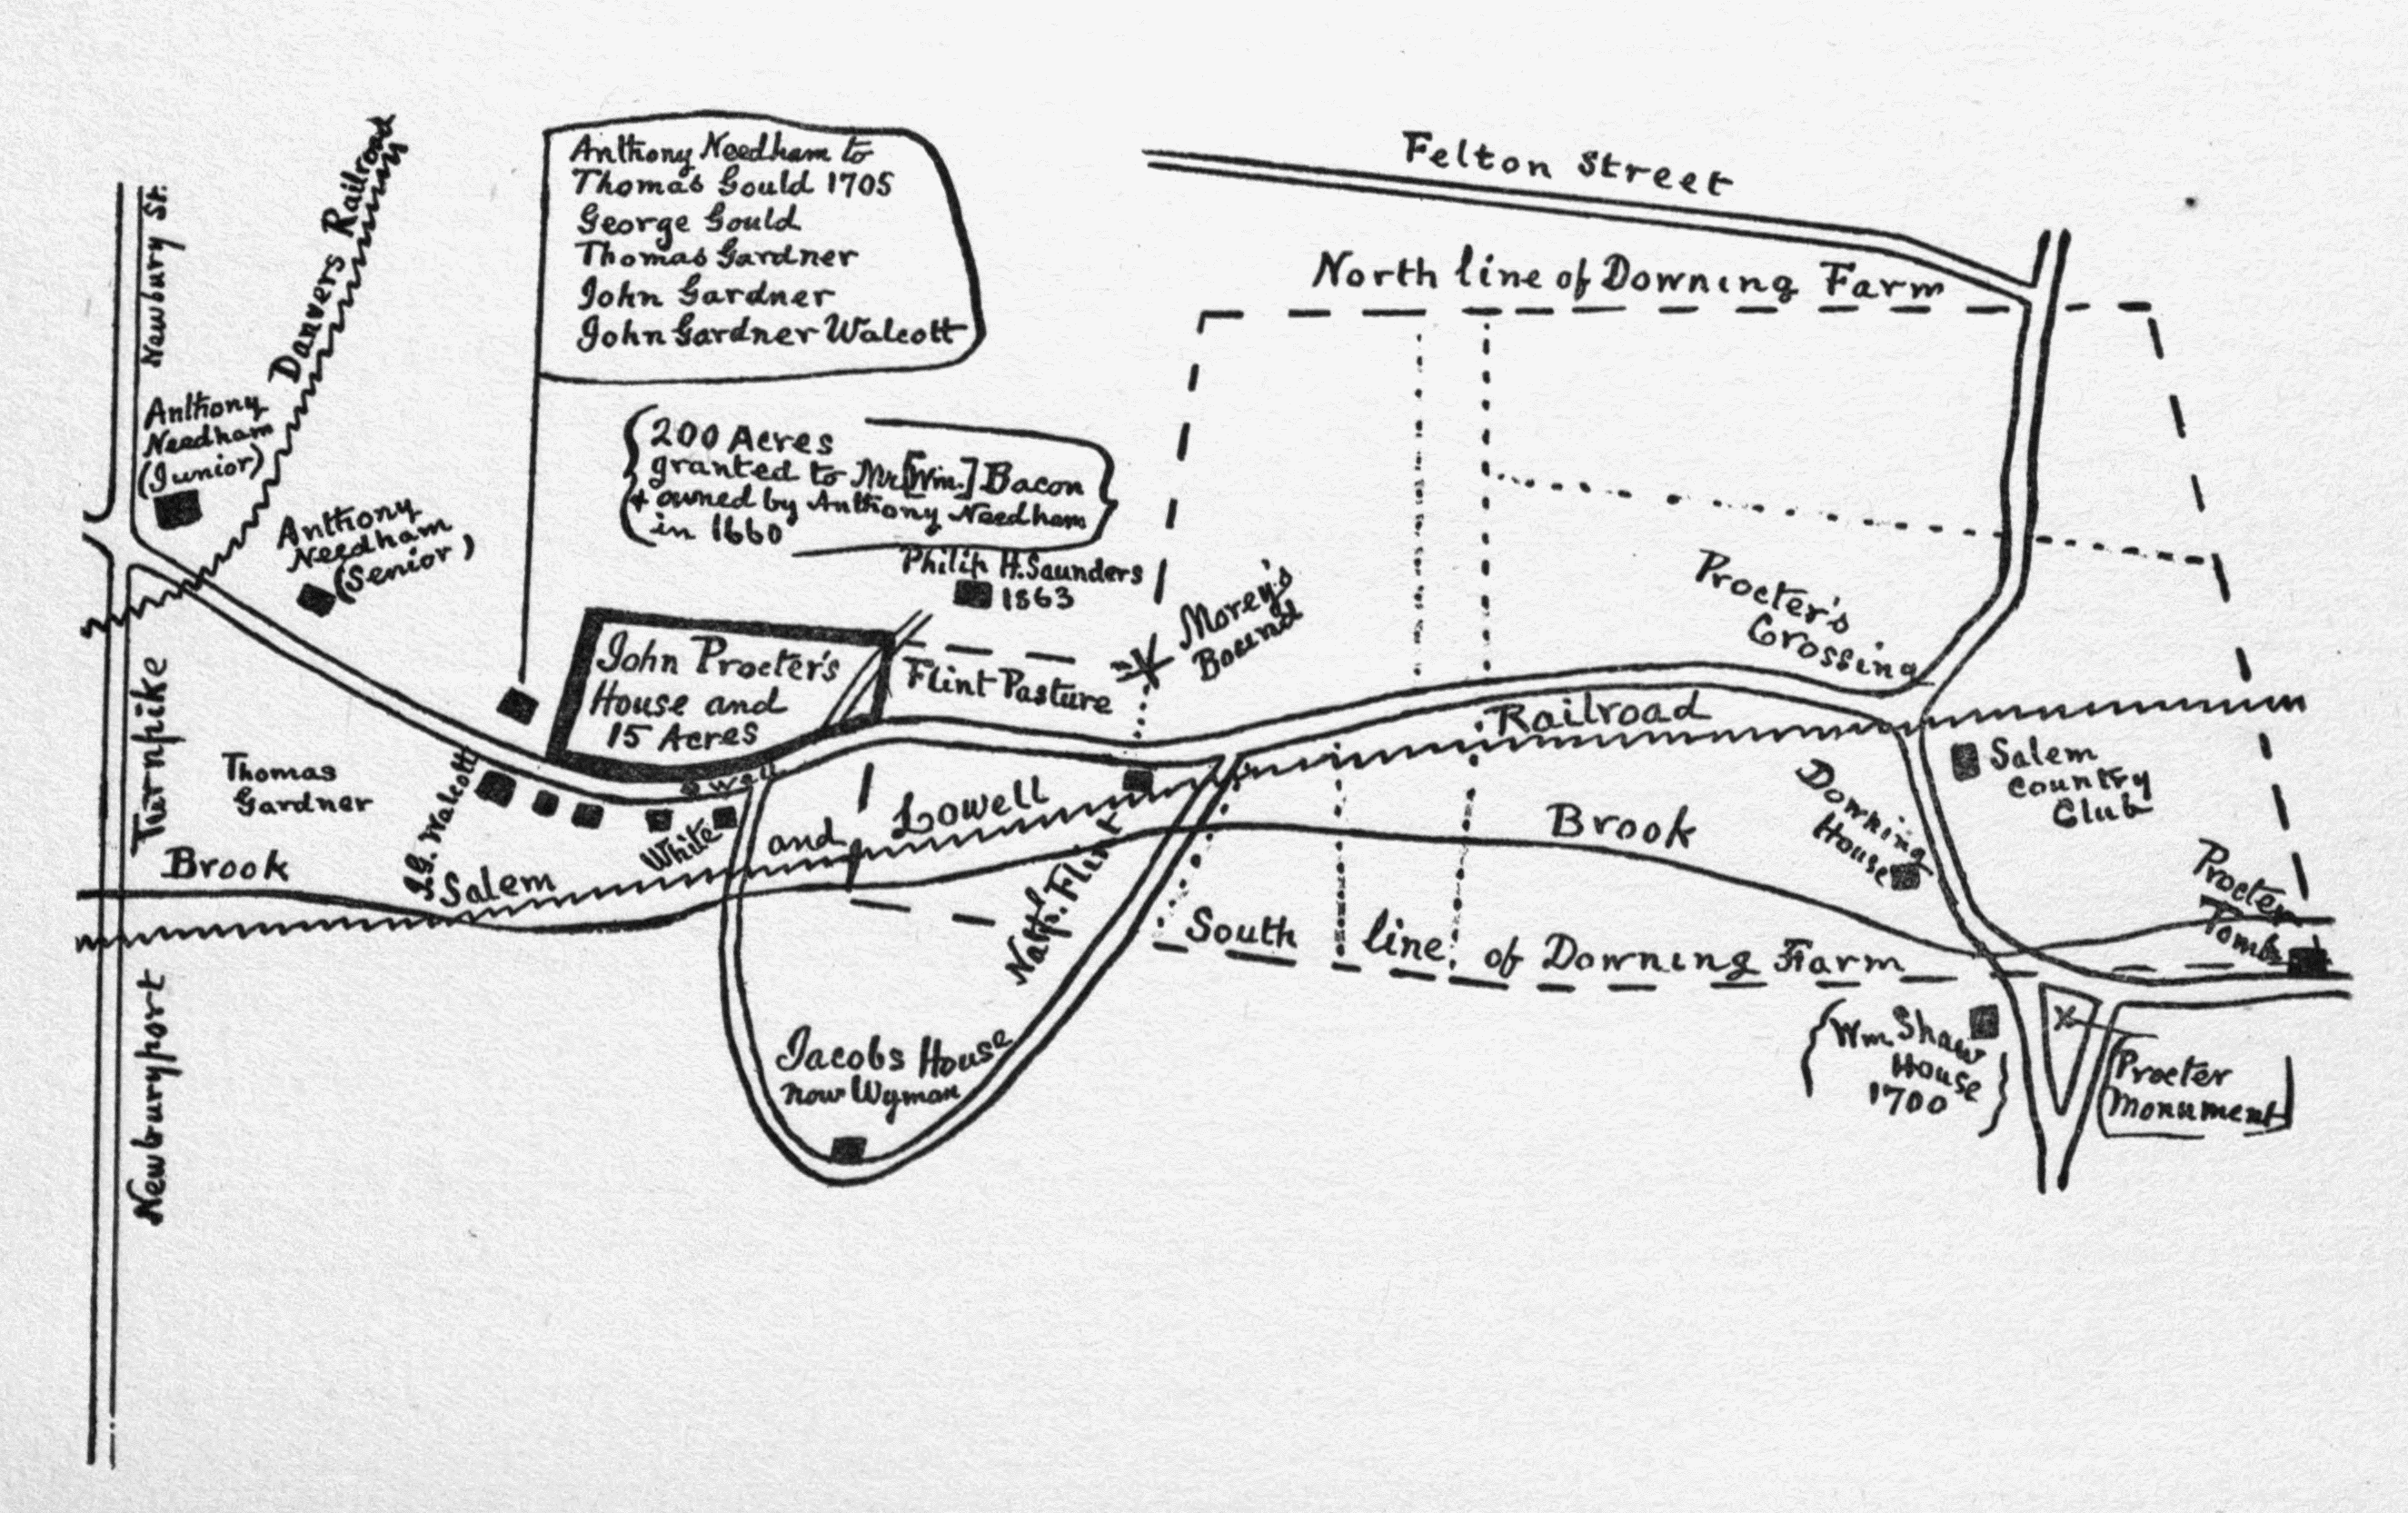 Newbury St.
Danvers Railroad
Anthony Needham to
Thomas Gould 1705
George Gould
Thomas Gardner
John Gardner
John Gardner Walcott
Felton Street
North line of Downing Farm
Anthony
Needham
(Junior)
Anthony
Needham
(Senior)
200 Acres
granted to Mr [Wm.] Bacon
& owned by Anthony Needham
in 1660
Philip H. Saunders
1863
Morey's
Bound
Procter's
Crossing
John Procter's
House and
15 Acres
Flint Pasture
Railroad
Turnpike
Thomas
Gardner
J.G. Walcott
Well
White
Salem
and
Lowell
Brook
Nathl. Flint
Brook
Downing
House
Salem
Country
Club
Procter
Tomb
South line of Downing Farm
Newburyport
Jacobs House
now Wyman
Wm. Shaw
House
1700
Procter
Monument